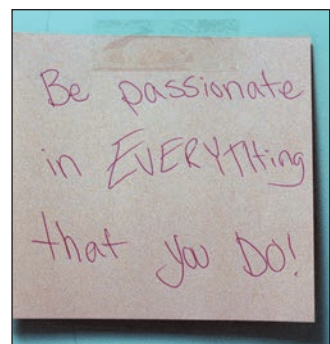 Be passionate
in EVERYTHing
that you DO!